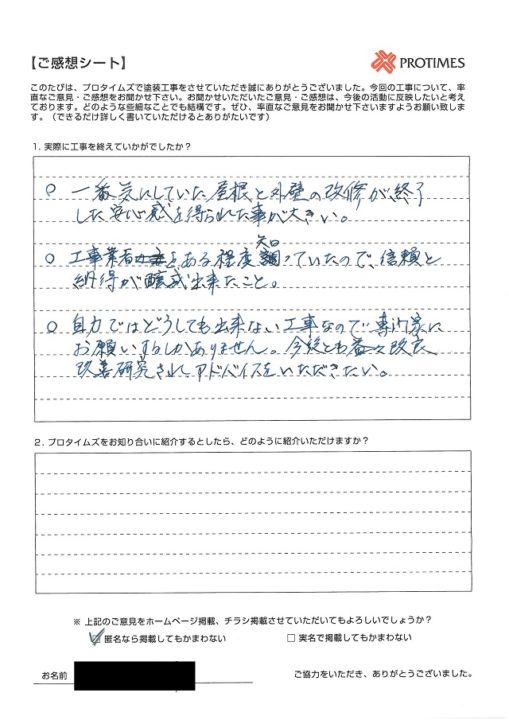 【ご感想シート】
PROTIMES
このたびは、プロタイムズで塗装工事をさせていただき誠にありがとうございました。今回の工事について、率
直なご意見・ご感想をお聞かせ下さい。お聞かせいただいたご意見・ご感想は、今後の活動に反映したいと考え
ております。どのような些細なことでも結構です。ぜひ、率直なご意見をお聞かせ下さいますようお願い致しま
す。（できるだけ詳しく書いていただけるとありがたいです）
1. 実際に工事を終えていかがでしたか？
○ 一番気にしていた屋根と外壁の改修が終了
した安心感を得られた事が大きい。
○ 工事業者をある程度知っていたので、信頼と
納得が醸成出来たこと。
○ 自力ではどうしても出来ない工事なので専門家に
お願いするしかありません。今後とも益々改良、
改善研究されアドバイスをいただきたい。
2. プロタイムズをお知り合いに紹介するとしたら、どのように紹介いただけますか？
※ 上記のご意見をホームページ掲載、チラシ掲載させていただいてもよろしいでしょうか？
☑ 匿名なら掲載してもかまわない □ 実名で掲載してもかまわない
お名前 ご協力をいただき、ありがとうございました。